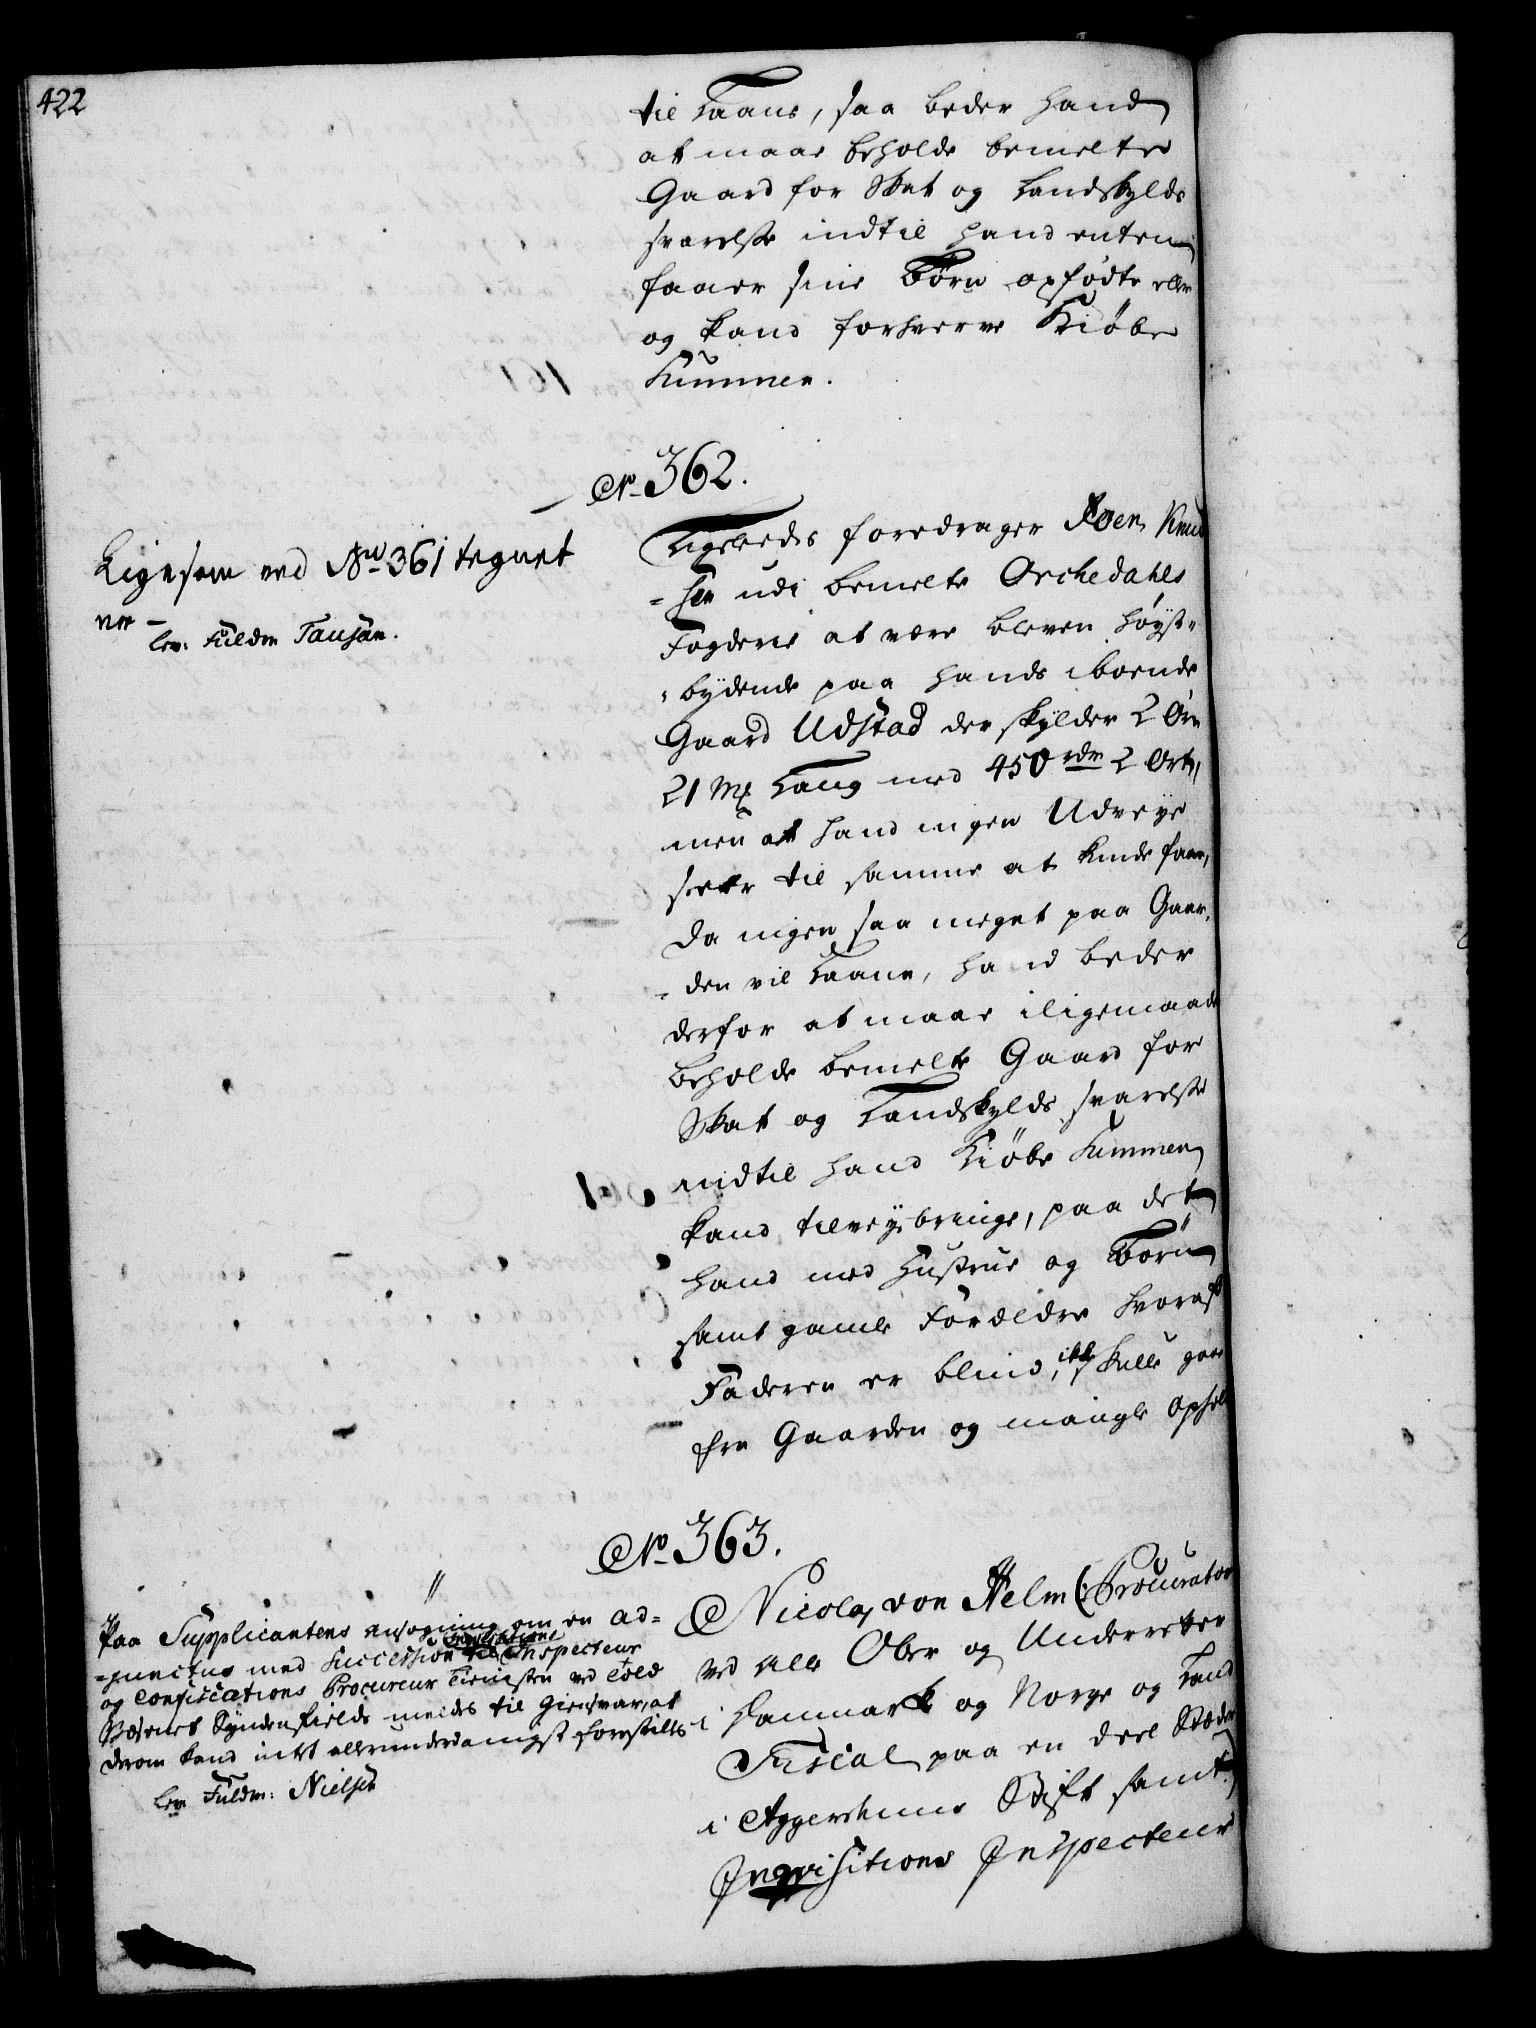 422
til Laans, saa beder hand
at maae beholde bemelte
Gaard for Skat og Landskylds
svarelse indtil hand enten
faaer sine Børn opfødte eller
og kand forhverve Kiøbe
Summen.
No 362.
Ligesom ved No 361 tegnet
er
lev: Fuldm Tausan.
Ligeledes foredrager Roen Knud
=sen udi bemelte Orchedahls
Fogderie at være bleven høyst=
=bydende paa hands iboende
Gaard Udstad der skylder 2 Øre
21 Mk Laug med 450 rdr 2 Ort,
men at hand ingen Udveye
seer til samme at kunde faae,
da ingen saa meget paa Gaar=
=den vil Laane, hand beder
derfor at maae iligemaade
beholde bemelte Gaard for
Skat og Landskylds svarelse
indtil hand Kiøbe Summen
kand tilveyebringe, paa det
hand med Hustrue og Børn
samt gamle Forældre hvoraf
Faderen er blind, ikke skulle gaae
fra Gaarden og mangle Ophold
No 363.
Paa Supplicantens ansøgning om en ad=
=junctus med Succession til Inqvisitions Inspecteur
og Confiscations Procureur Tienesten ved Told
Væsenet Syndenfields meldes til Giensvar, at
derom kand intet allerunderdanigst forestilles
lev Fuldm: Nielsen
Nicolay von Helm (: Procurator
ved alle Ober og Underretter
i Danmark og Norge og Land
Fiscal paa en deel Stæder
i Aggershuus Stift samt
Inqvisitions Inspecteur